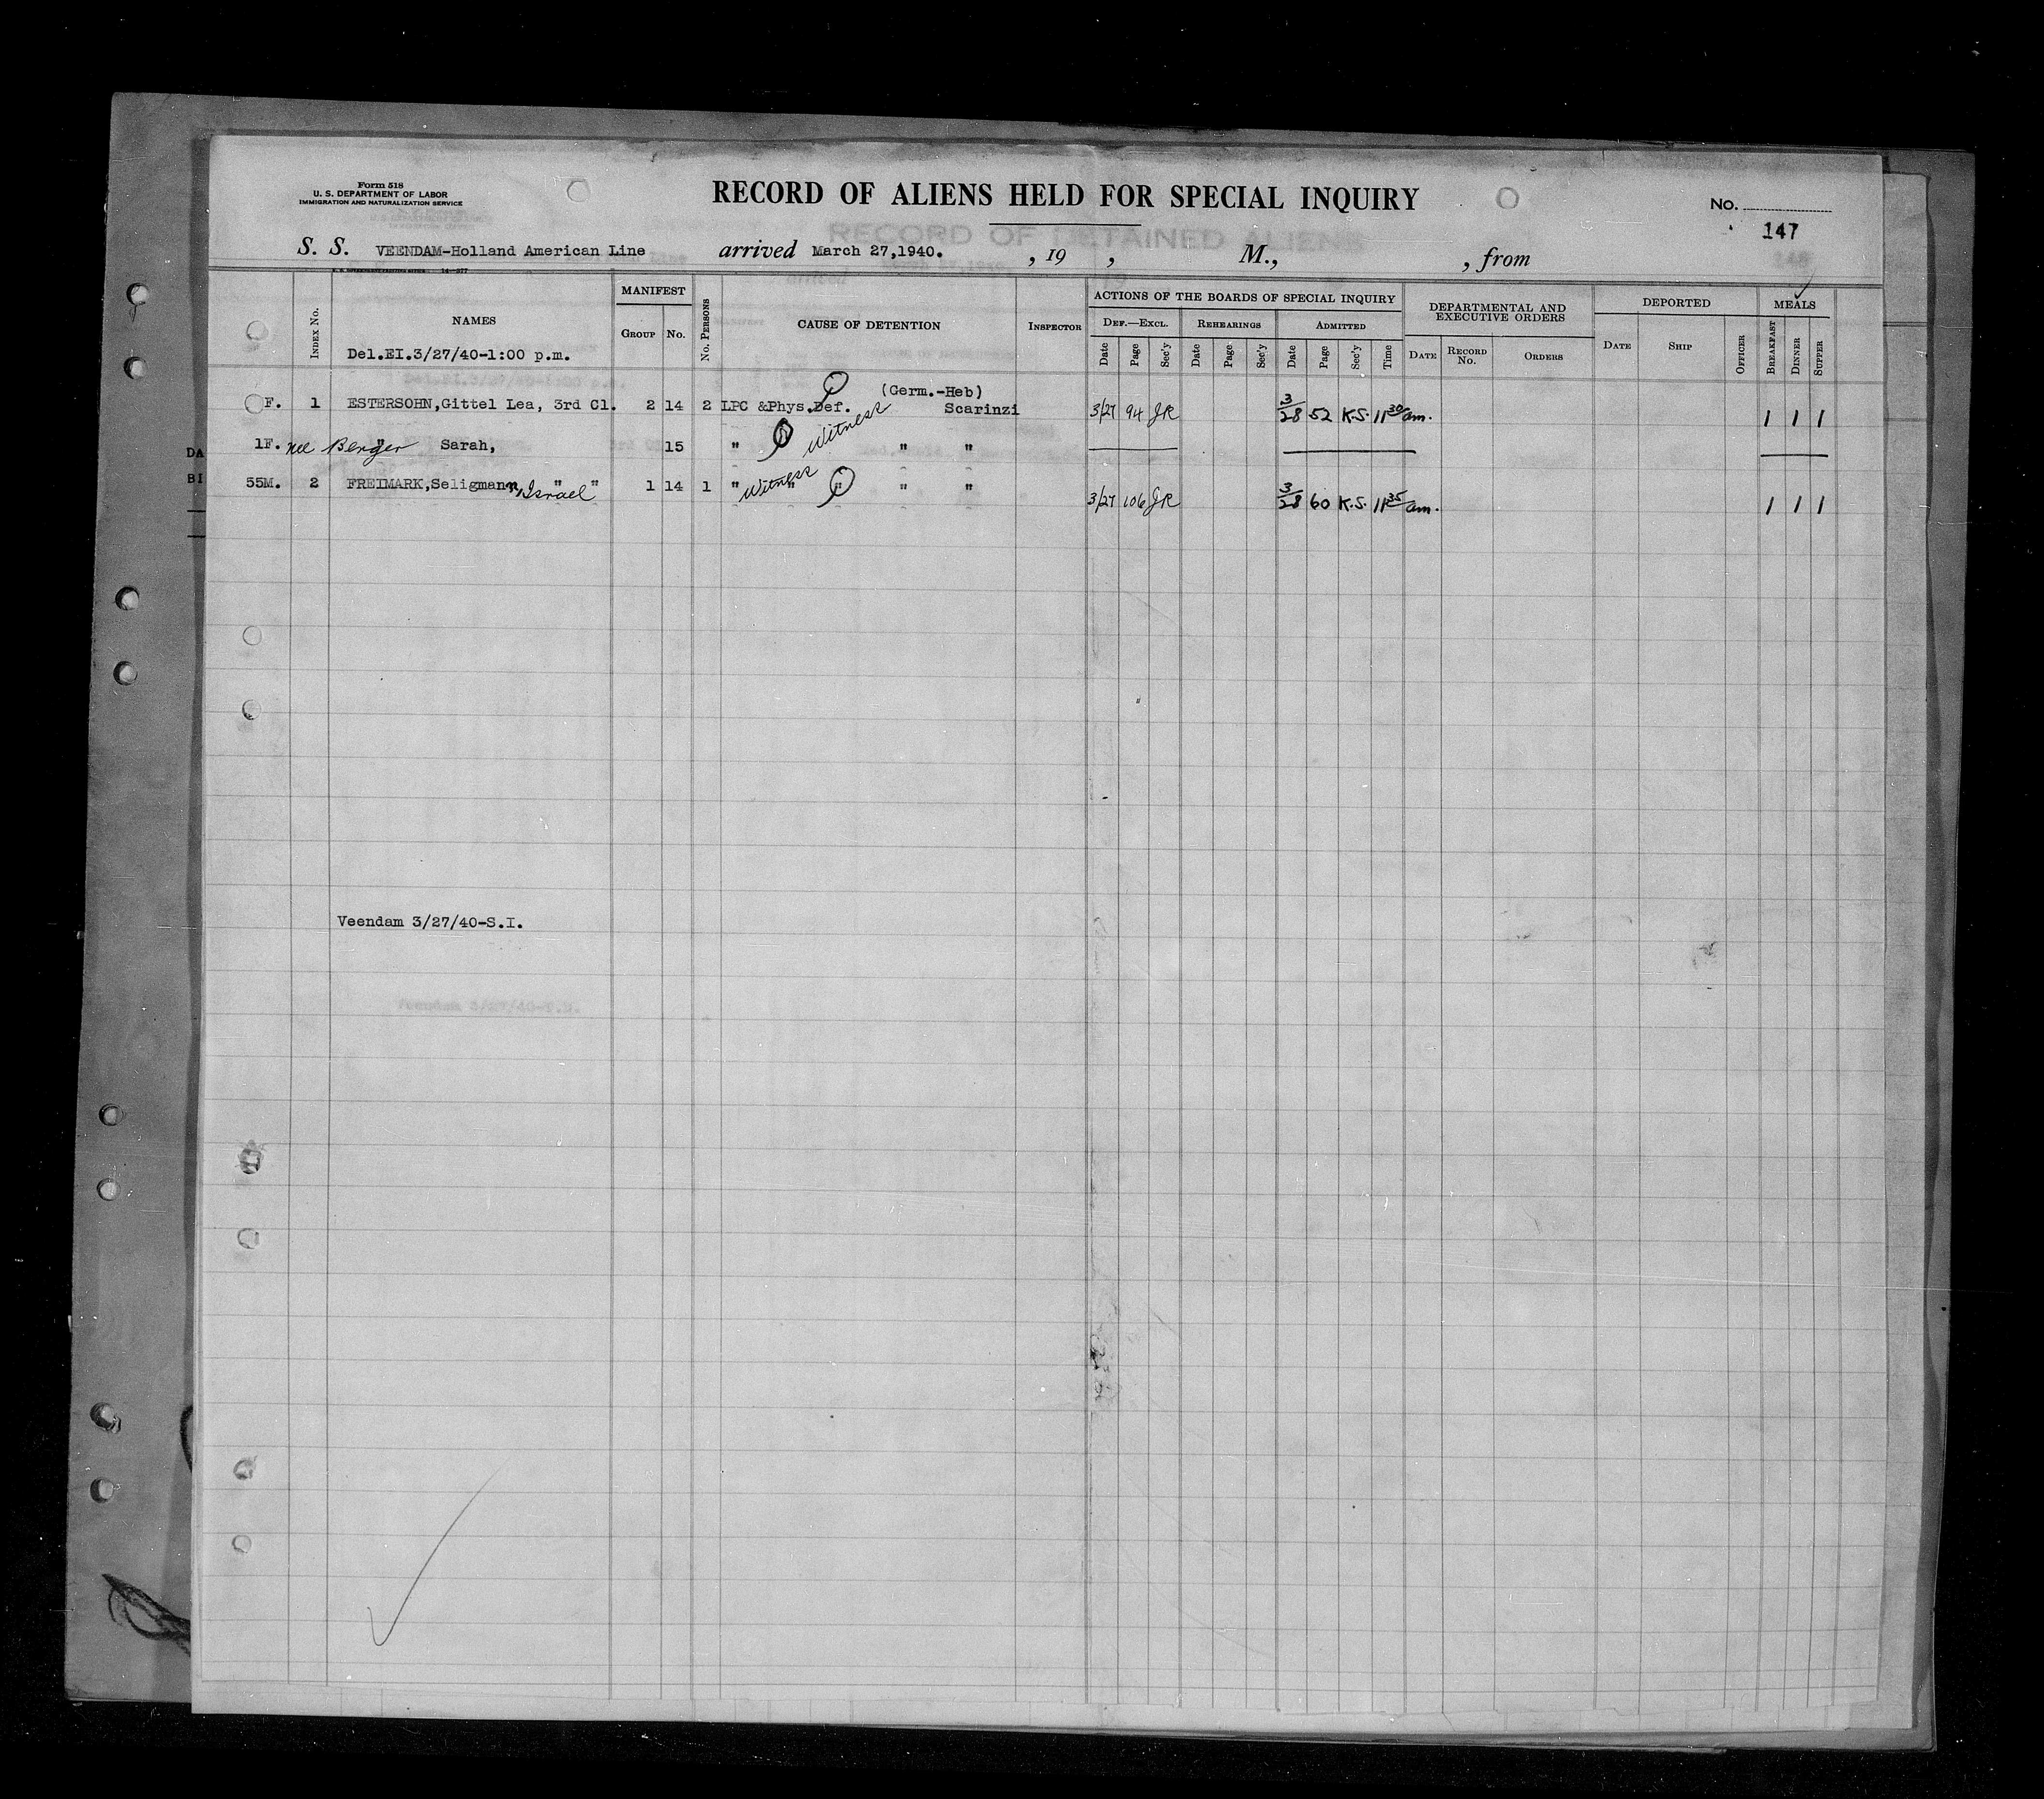 Form 518
U. S. DEPARTMENT OF LABOR
IMMIGRATION AND NATURALIZATION SERVICE
RECORD OF ALIENS HELD FOR SPECIAL INQUIRY
No.
147
S. S. VEENDAM-Holland American Line arrived March 27,1940. , 19 , M., , from
Index No. NAMES MANIFEST Group No. No. Persons CAUSE OF DETENTION Inspector ACTIONS OF THE BOARDS OF SPECIAL INQUIRY Def.—Excl. Date Page Sec'y Rehearings Date Page Sec'y Admitted Date Page Sec'y Time DEPARTMENTAL AND EXECUTIVE ORDERS Date Record No. Orders DEPORTED Date Ship Officer MEALS Breakfast Dinner Supper
Del.EI.3/27/40-1:00 p.m.
(Germ.-Heb)
F. 1 ESTERSOHN,Gittel Lea, 3rd Cl. 2 14 2 LPC &Phys.Def. Witness Scarinzi 3/27 94 JR 3/28 52 K.S. 11 30 am. 1 1 1
1F. nee Berger " Sarah, 15 " " "
55M. 2 FREIMARK,Seligmann, Israel " " 1 14 1 " Witness " " " " 3/27 106 JR 3/28 60 K.S. 11 35 am. 1 1 1
Veendam 3/27/40-S.I.
DA
BI